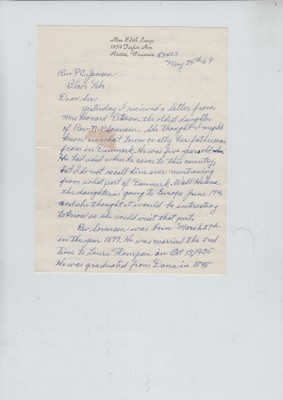 Miss Edith Lange
1874 Taylor Ave
Racine, Wisconsin
53403
May 24th 69
Rev. P.C. Jensen
Blair Neb.
Dear Sir:
Yesterday I received a letter from
Mrs Howard Peterson the oldest daughter
of Rev. N.P. Sorensen. She thought I might
know what town or city her father was
from in Denmark. He was five years old
He had said when he came to this country,
but I do not recall him ever mentioning
from what part of Denmark. Well
the daughter is going to Europe June 19th
and she thought it would be interesting
to know so she could visit that part.
Rev. Sorensen was born March 27th
in the year 1877. He was married the 2nd
time to Laura Thompson on Oct 13, 1925
He was graduated from Dana in 1898